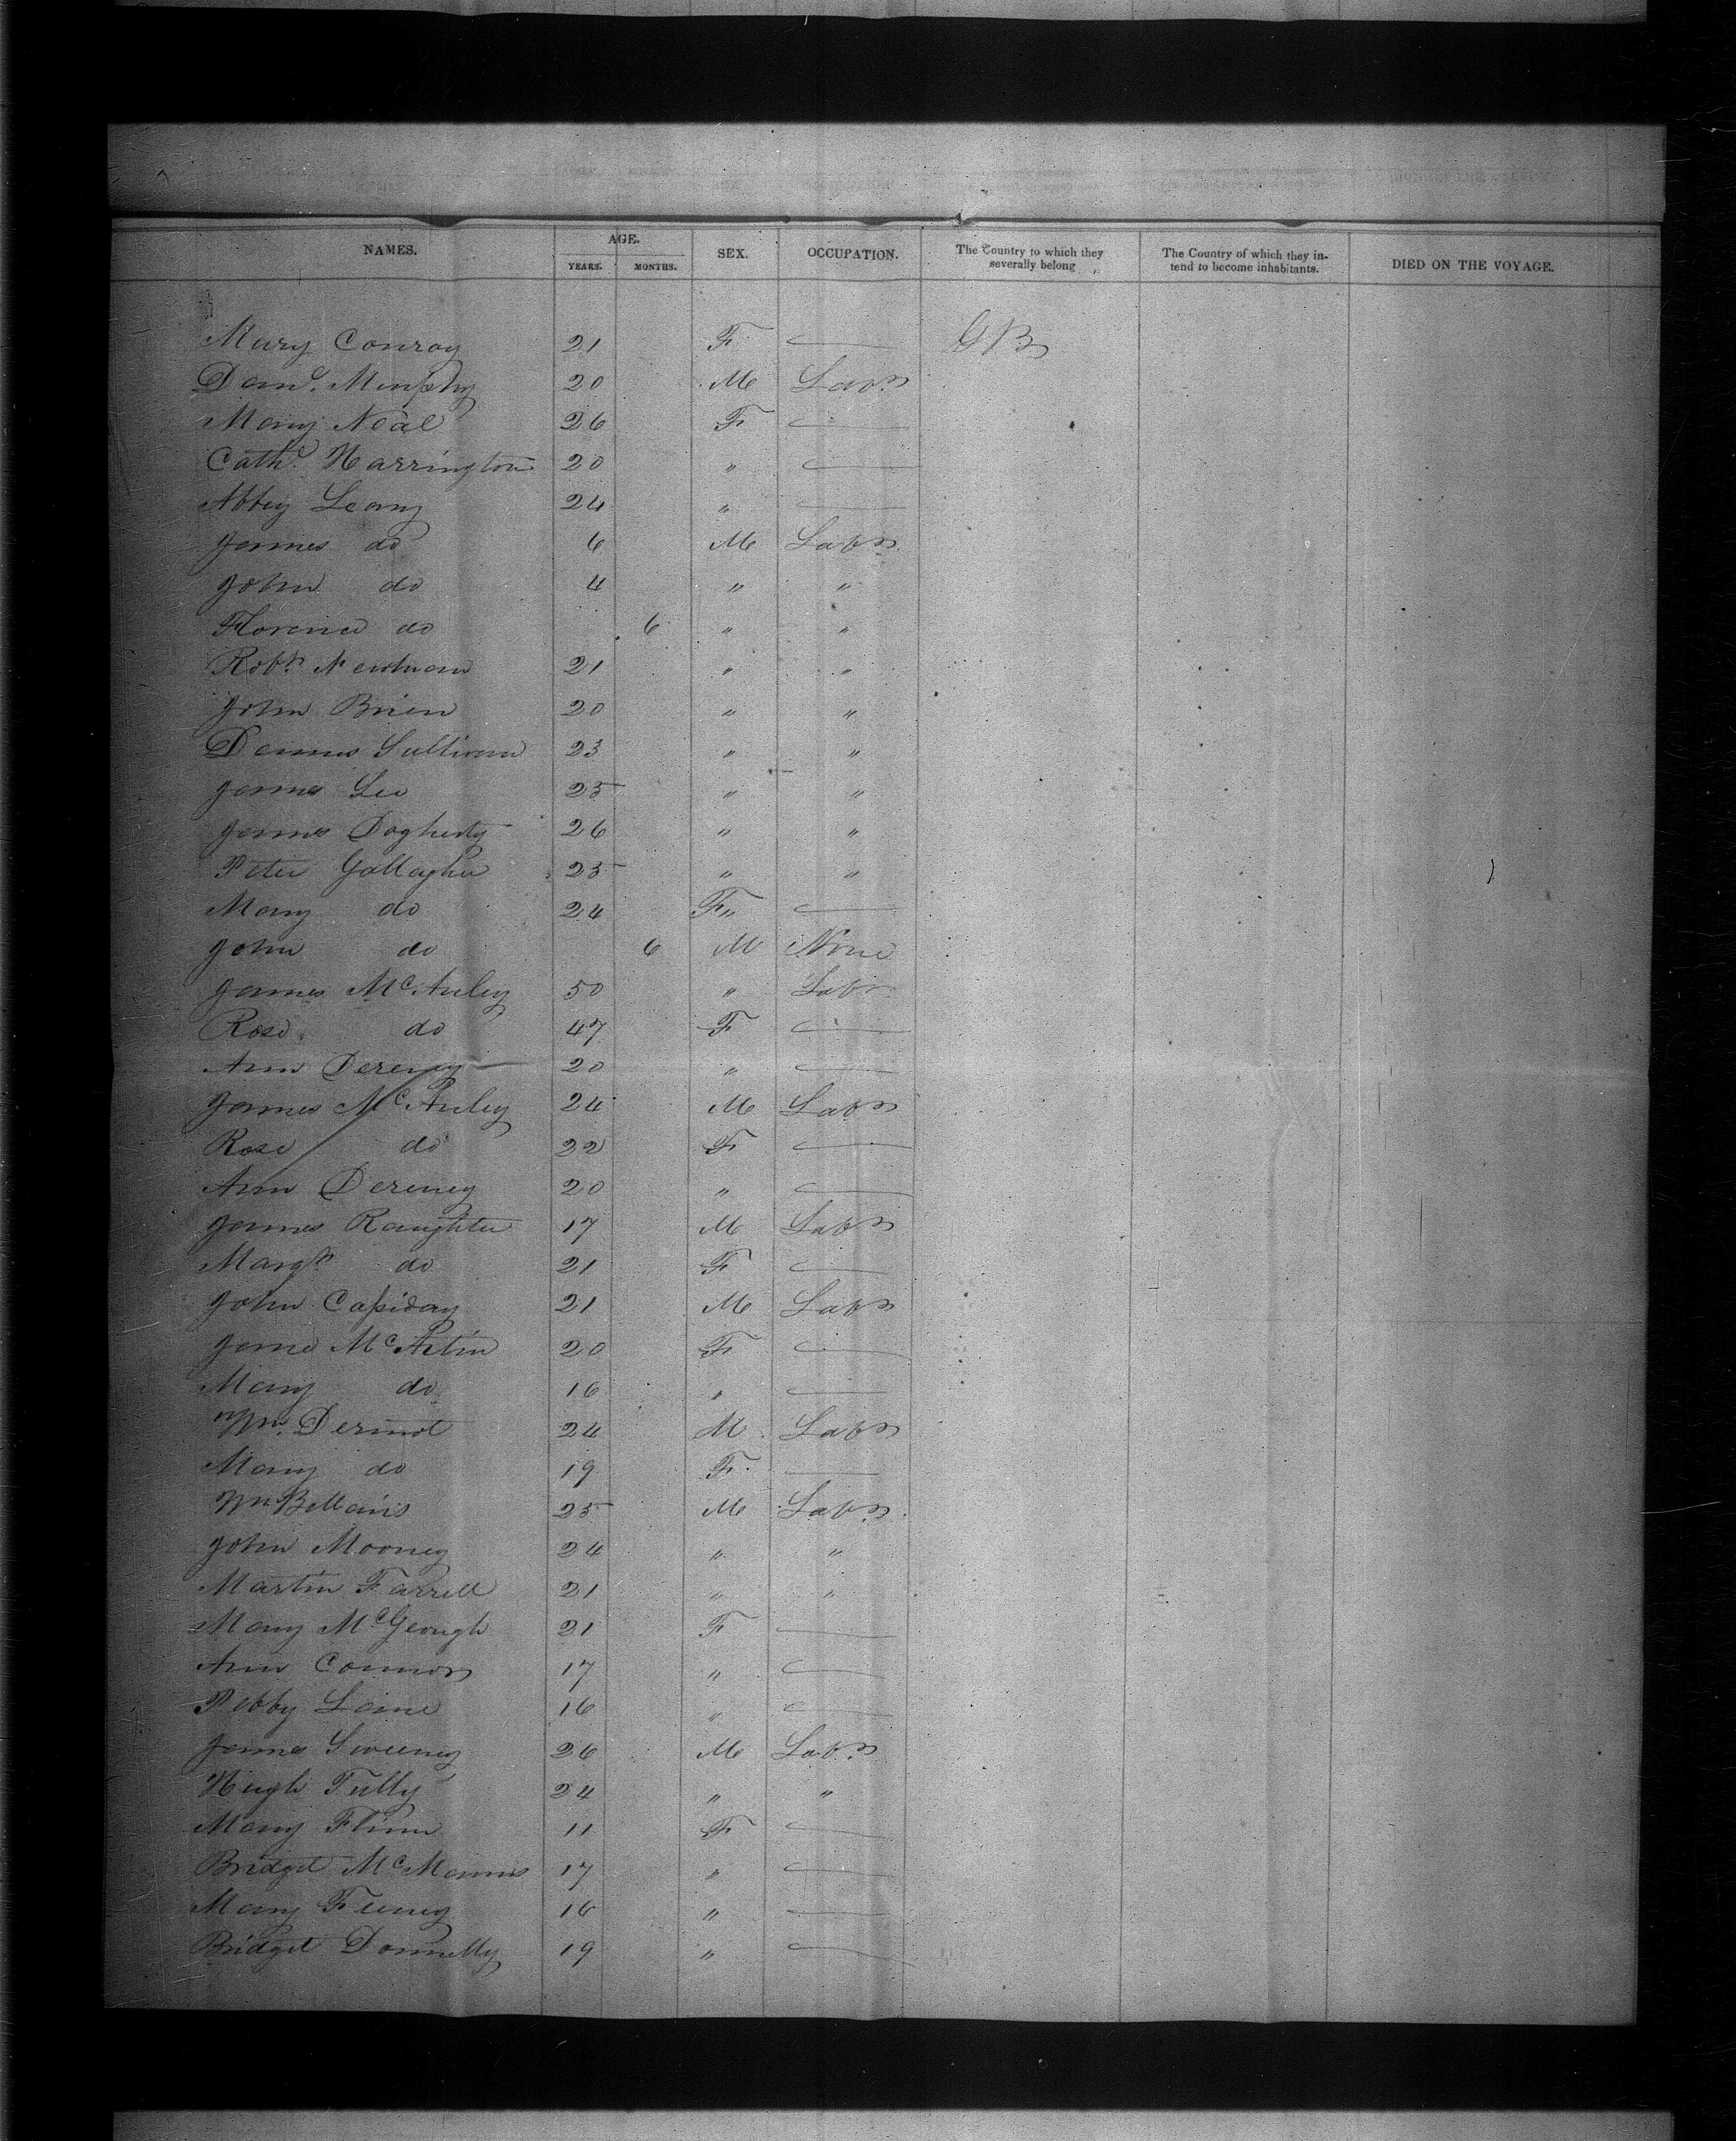 NAMES. AGE. SEX. OCCUPATION. The Country to which they severally belong The Country of which they intend to become inhabitants. DIED ON THE VOYAGE.
YEARS. MONTHS.
Mary Conroy 21 F — G B
Danl. Murphy 20 M Labr
Mary Neal 26 F —
Cathe. Harrington 20 " —
Abbey Leary 24 " —
James do 6 M Labr
John do 4 " "
Florence do 6 " "
Robt. Newman 21 " "
John Brien 20 " "
Dennis Sullivan 23 " "
James Lee 25 " "
James Dogherty 26 " "
Peter Gallagher 25 " "
Mary do 24 F" —
John do 6 M None
James McAuley 50 " Labr
Rose do 47 F —
Ann Dereney 20 " —
James McAuley 24 M Labr
Rose do 22 F —
Ann Dereney 20 " —
James Raughter 17 M Labr
Margt. do 21 F —
John Cassiday 21 M Labr
Jane McArtin 20 F —
Mary do 16 " —
Wm. Dermot 24 M Labr
Mary do 19 F —
Wm. 25 M Labr
John Mooney 24 " "
Martin Farrell 21 " "
Mary McGeough 21 F —
Ann Connors 17 " —
Pebby 16 " —
James Sweeney 26 M Labr
Hugh Tully 24 " "
Mary Flinn 11 F —
Bridget McManus 17 " —
Mary Feeney 16 " —
Bridget Donnelly 19 " —